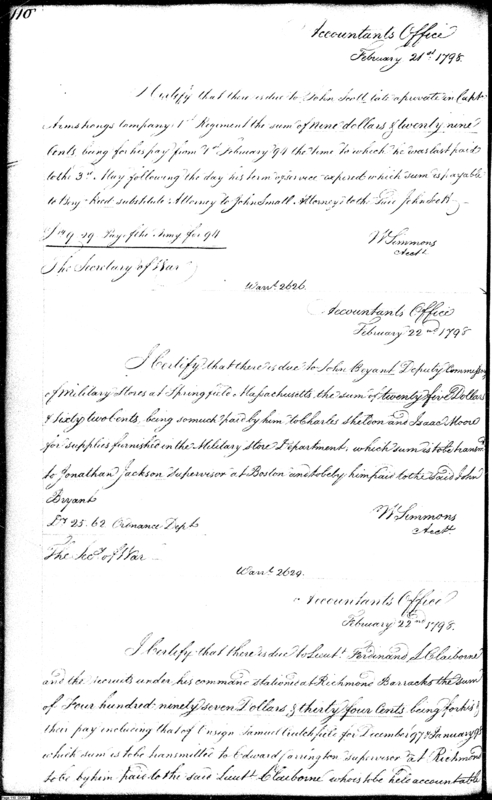 110
Accountants Office
February 21st 1798
I Certify that there is due to John Scott late a private in Capt
Armstrongs Company 1st Regiment the sum of nine dollars & twenty nine
Cents, being for his pay from 1st February 94 the time to which he was last paid
to the 3d May following the day his term of service expired which sum is payable
to Benj substitute Attorney to John Small Attorney to the said John Scott
Dr 9.29 Pay of the Army for 94
Wm Simmons
Acct
The Secretary of War
Warrt 2626
Accountants Office
February 22nd 1798
I Certify that there is due to John Bryant Deputy Commissy
of Military Stores at Springfield Massachusetts, the sum of twenty five Dollars
& sixty two Cents, being so much paid by him to Charles Sheldon and Isaac Moore
for supplies furnished in the Military Store Department, which sum is to be transmd
to Jonathan Jackson Supervisor at Boston and to be by him paid to the said John
Bryant
Dr 25.62 Ordnance Dept
Wm Simmons
Acct
The Secy of War
Warrt 2629
Accountants Office
February 22nd 1798
I Certify that there is due to Lieut Ferdinand L Claiborne
and the recruits under his command stationed at Richmond Barracks the sum
of Four hundred ninety seven Dollars & thirty four Cents being for his &
their pay including that of Ensign Samuel Crutchfield for December 97 & January 98
which sum is to be transmitted to Edward Carrington Supervisor at Richmond
to be by him paid to the said Lieut Claiborne who is to be held accountable